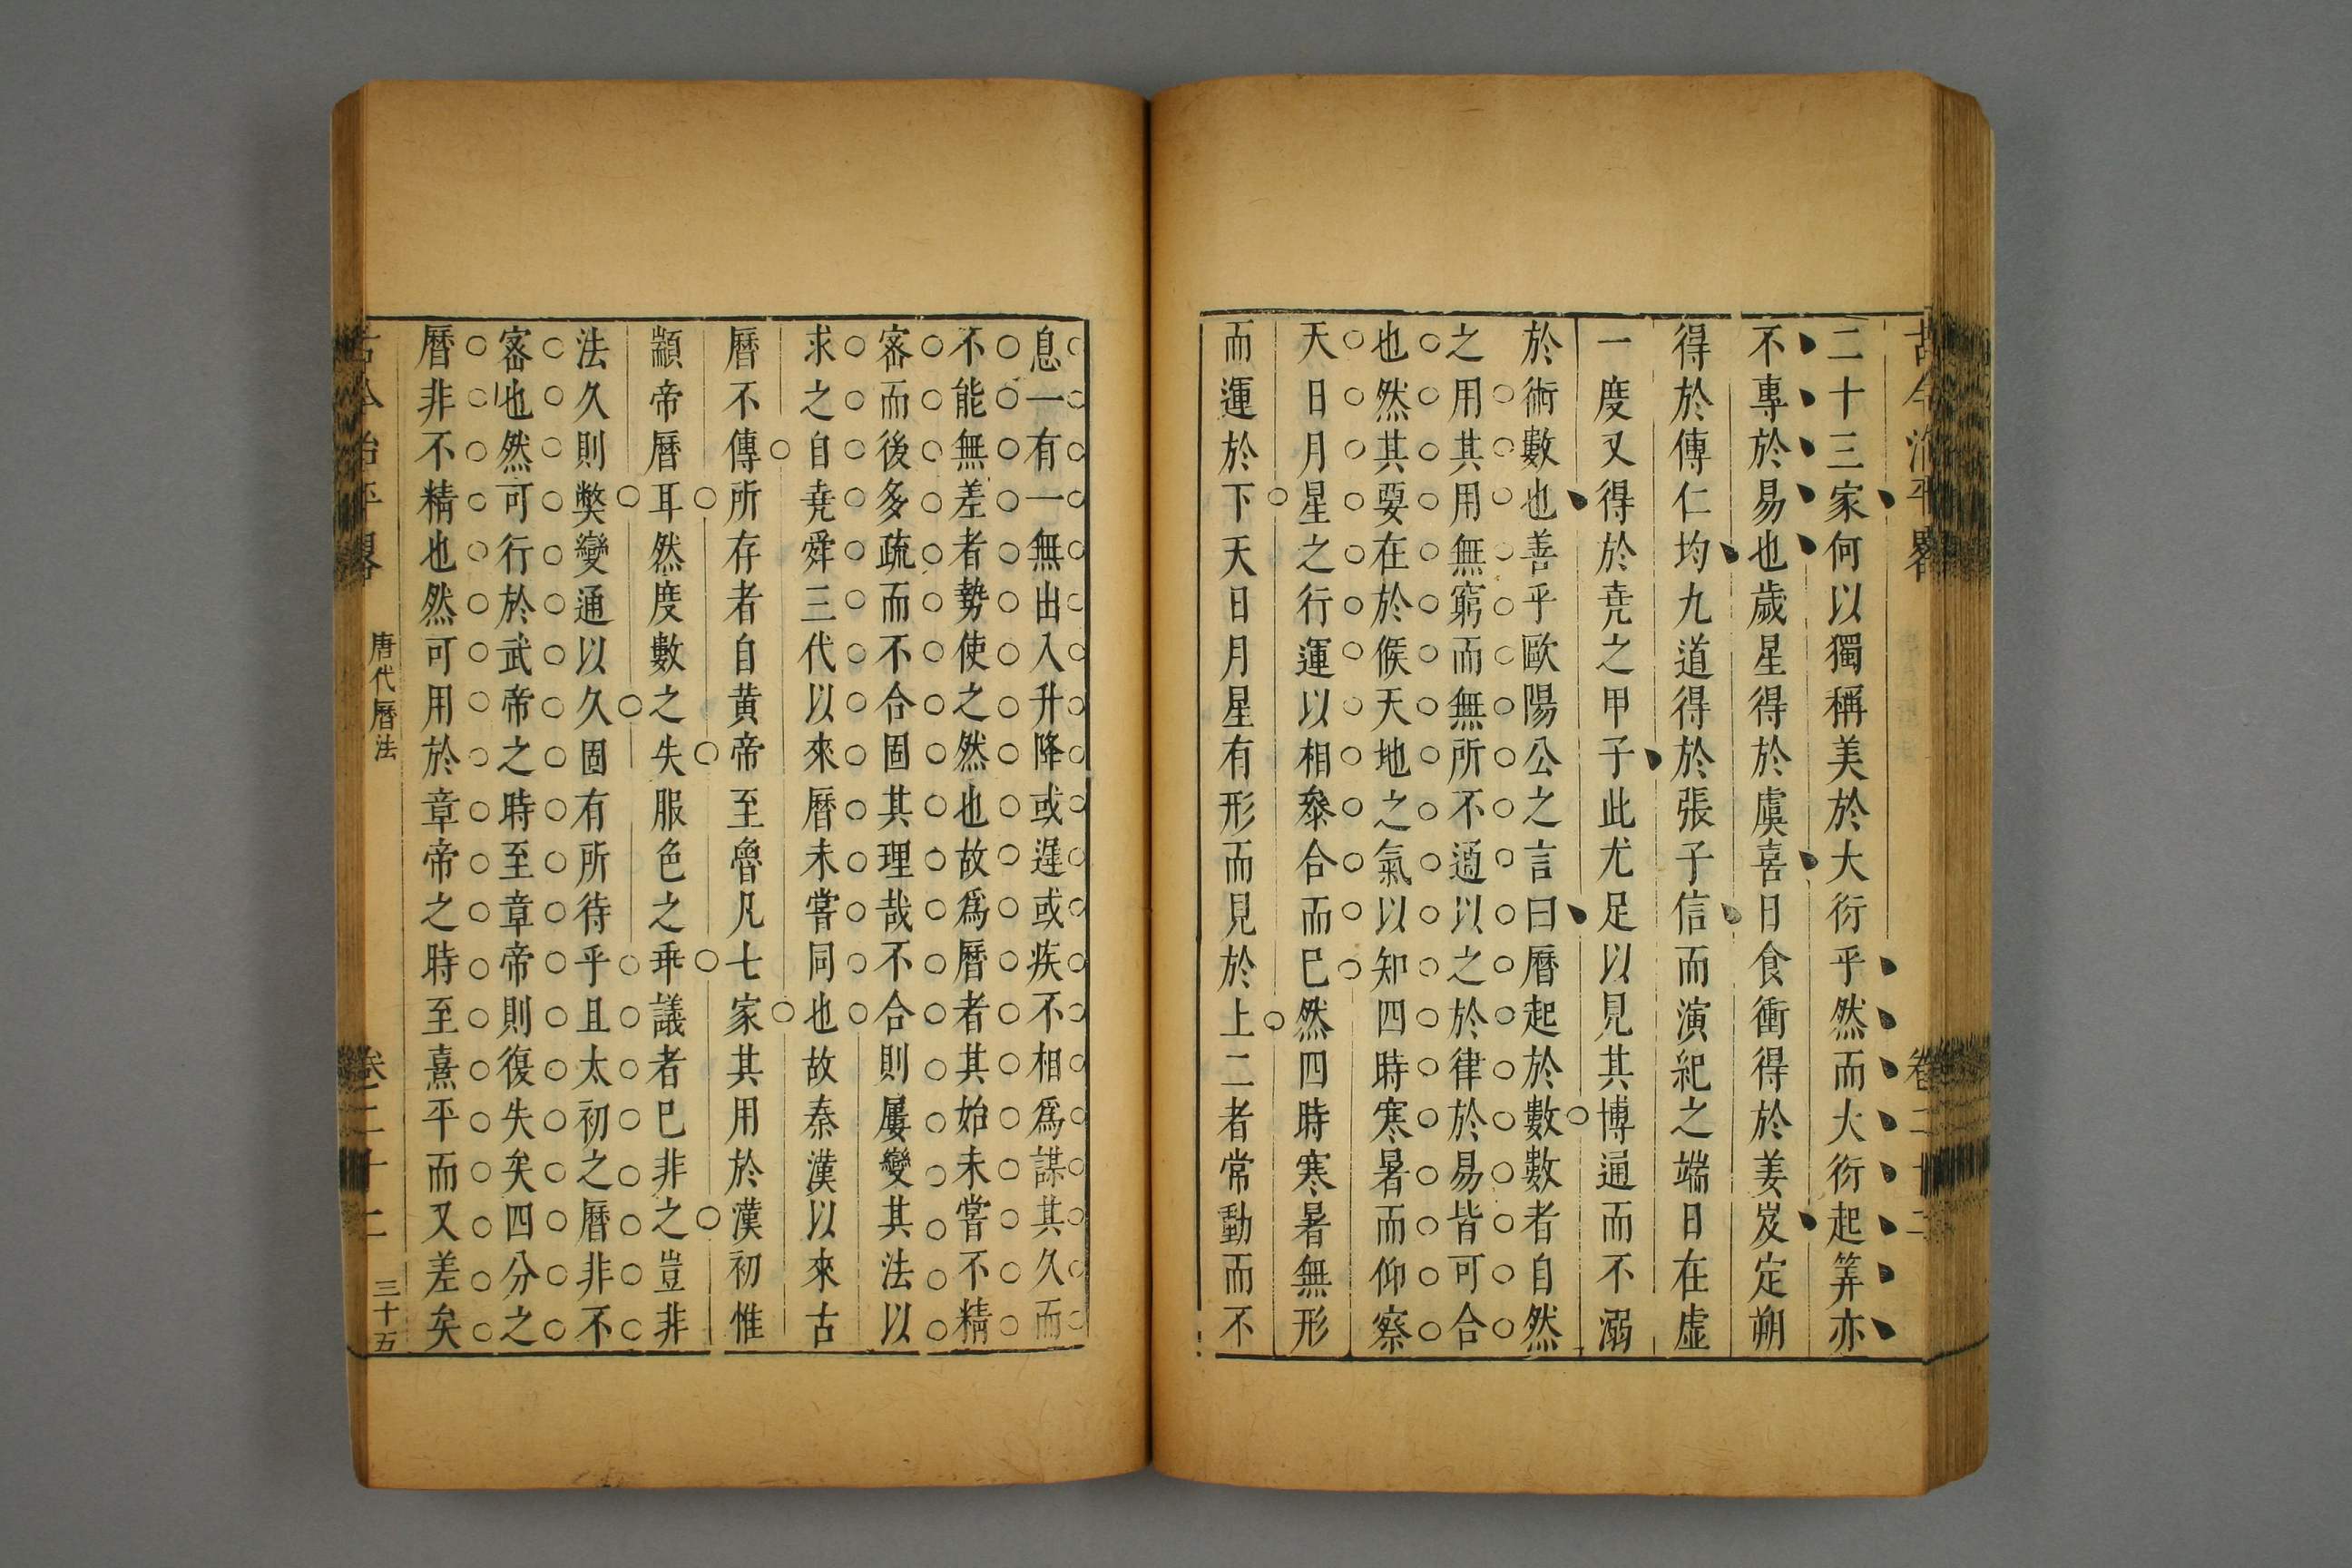 古今治平畧
卷二十二
二十三家何以獨稱美於大衍乎然而大衍起筭亦
不專於易也歲星得於虞喜日食衝得於姜岌定朔
得於傳仁均九道得於張子信而演紀之端日在虛
一度又得於堯之甲子此尤足以見其博通而不溺
於術數也善乎歐陽公之言曰曆起於數數者自然
之用其用無窮而無所不通以之於律於易皆可合
也然其要在於候天地之氣以知四時寒暑而仰察
天日月星之行運以相叅合而已然四時寒暑無形
而運於下天日月星有形而見於上二者常動而不
息一有一無出入升降或遲或疾不相爲謀其久而
不能無差者勢使之然也故爲曆者其始未嘗不精
宻而後多疏而不合固其理哉不合則屢變其法以
求之自堯舜三代以來曆未嘗同也故秦漢以來古
曆不傳所存者自黃帝至魯凡七家其用於漢初惟
顓帝曆耳然度數之失服色之乖議者已非之豈非
法久則獘變通以久固有所待乎且太初之曆非不
宻也然可行於武帝之時至章帝則復失矣四分之
曆非不精也然可用於章帝之時至熹平而又差矣
古今治平畧
唐代曆法
卷二十二
三十五